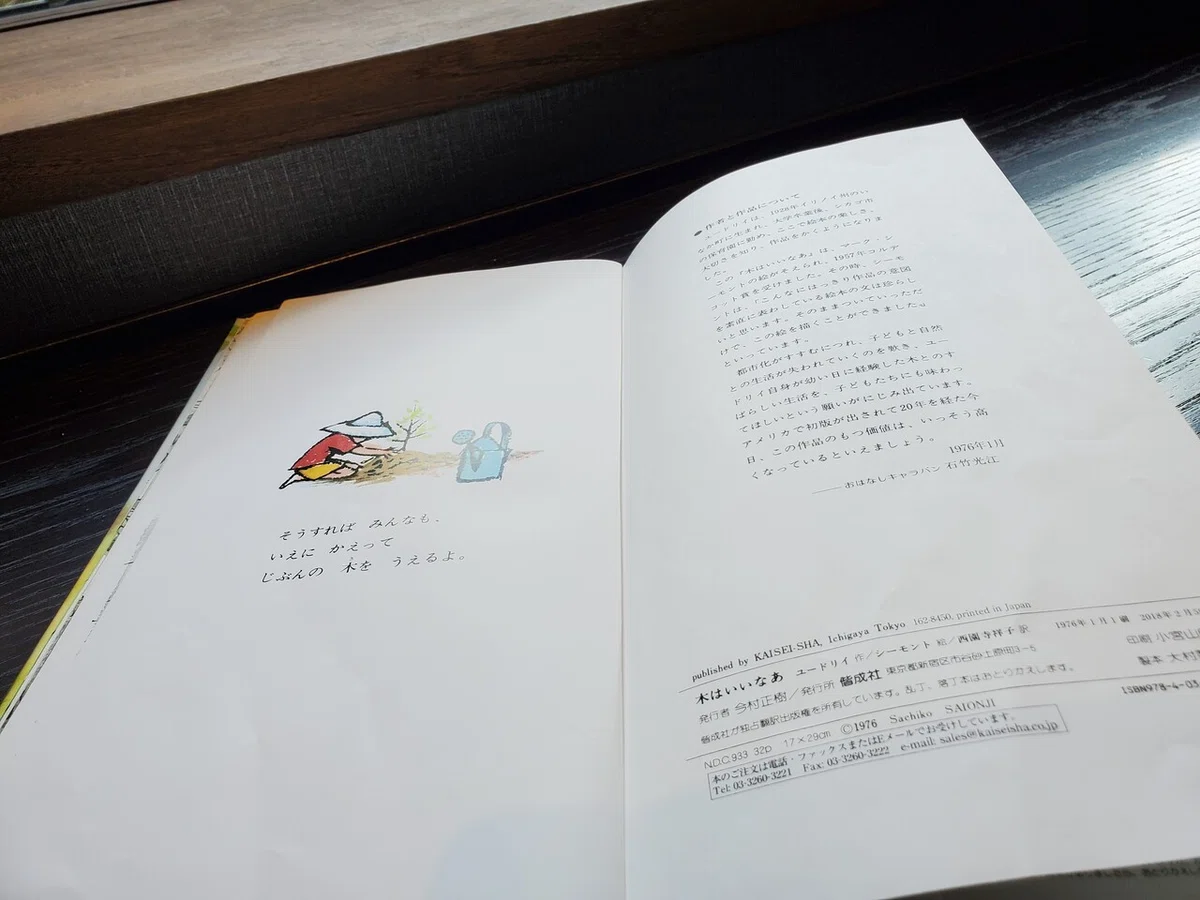 そうすれば　みんなも、
いえに　かえって
じぶんの　木を　うえるよ。
●作者と作品について
ユードリイは、1928年イリノイ州のい
なか町に生まれ、大学卒業後、シカゴ市
の保育園に勤め、ここで絵本の楽しさ、
大切さを知り、作品をかくようになりま
した。
この『木はいいなあ』は、マーク・シ
ーモントの絵がそえられ、1957年コルデ
コット賞を受けました。その時、シーモ
ントは、「こんなにはっきり作品の意図
を素直に表わしている絵本の文は珍らし
いと思います。そのままついていっただ
けで、この絵を描くことができました。」
といっています。
都市化がすすむにつれ、子どもと自然
との生活が失われていくのを歎き、ユー
ドリイ自身が幼い日に経験した木とのす
ばらしい生活を、子どもたちにも味わっ
てほしいという願いがにじみ出ています。
アメリカで初版が出されて20年を経た今
日、この作品のもつ価値は、いっそう高
くなっているといえましょう。
1976年1月
——おはなしキャラバン 石竹光江
published by KAISEI-SHA, Ichigaya Tokyo 162-8450, printed in Japan
木はいいなあ　ユードリイ 作／シーモント 絵／西園寺祥子 訳　1976年1月1刷　2018年2月
発行者 今村正樹／発行所 偕成社 東京都新宿区市谷砂土原町3-5　印刷 小宮山
偕成社が独占翻訳出版権を所有しています。乱丁、落丁本はおとりかえします。　製本 大村
N.D.C.933 32p　17×29cm　©1976　Sachiko　SAIONJI　ISBN978-4-03
本のご注文は電話・ファックスまたはEメールでお受けしています。
Tel: 03-3260-3221　Fax: 03-3260-3222　e-mail: sales@kaiseisha.co.jp